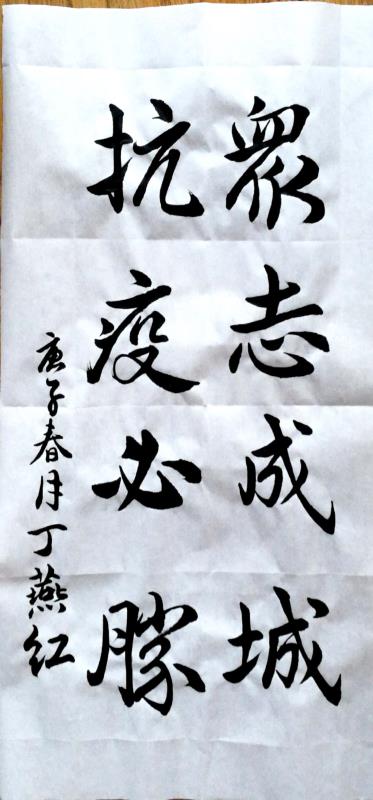 眾志成城
抗疫必勝
庚子春月丁燕红